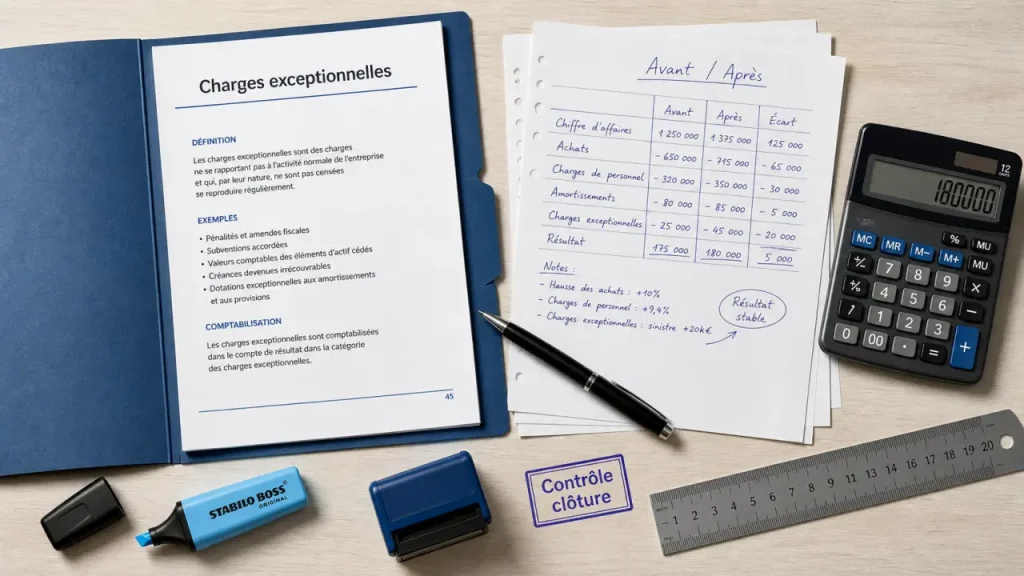 Charges exceptionnelles
DÉFINITION
Les charges exceptionnelles sont des charges
ne se rapportant pas à l'activité normale de l'entreprise
et qui, par leur nature, ne sont pas censées
se reproduire régulièrement.
EXEMPLES
• Pénalités et amendes fiscales
• Subventions accordées
• Valeurs comptables des éléments d'actif cédés
• Créances devenues irrécouvrables
• Dotations exceptionnelles aux amortissements
et aux provisions
COMPTABILISATION
Les charges exceptionnelles sont comptabilisées
dans le compte de résultat dans la catégorie
des charges exceptionnelles.
45
Avant / Après
Avant Après Écart
Chiffre d'affaires 1 250 000 1 375 000 125 000
Achats - 650 000 - 715 000 - 65 000
Charges de personnel - 320 000 - 350 000 - 30 000
Amortissements - 80 000 - 85 000 - 5 000
Charges exceptionnelles - 25 000 - 45 000 - 20 000
Résultat 175 000 180 000 5 000
Notes :
- Hausse des achats : +10%
- Charges de personnel : +9,4%
- Charges exceptionnelles : sinistre +20k€
Résultat
stable
12
180000
% MU
MC MR M– M+ MU
⁺∕₋ 7 8 9 ×
% 4 5 6 −
7 1 2 3
0 00 · = +
STABILO BOSS
ORIGINAL
Contrôle
clôture
1 2 3 4 5 6 7 8 9 10 11 13 14 15 16 17 18 19 20